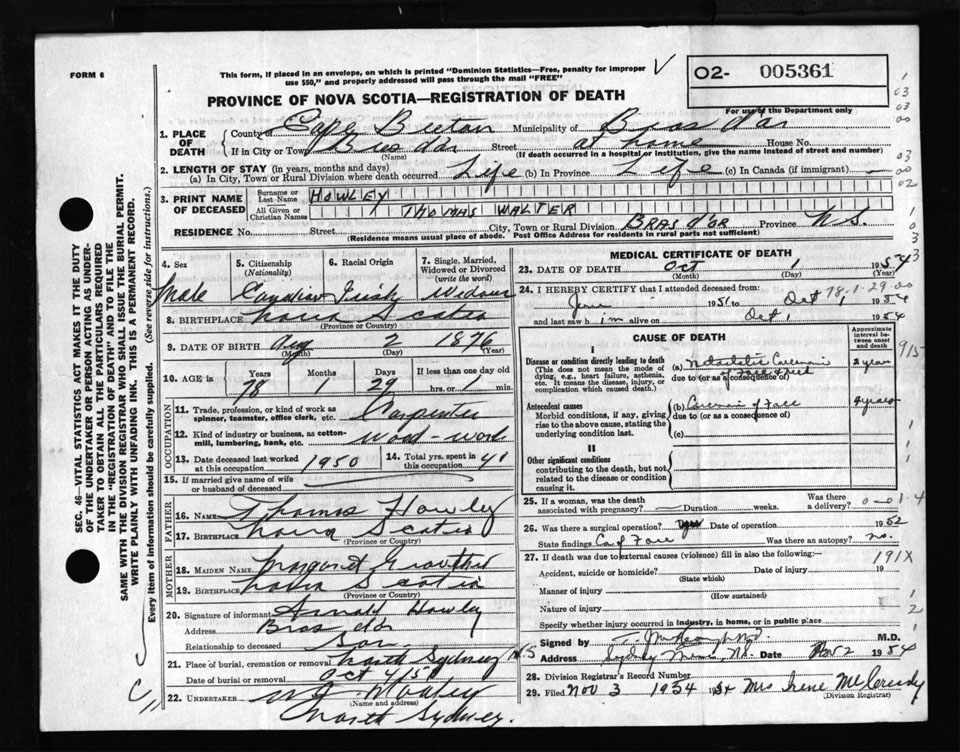 FORM 6
This form, if placed in an envelope, on which is printed "Dominion Statistics—Free, penalty for improper
use $50," and properly addressed will pass through the mail "FREE"
O2- 005361
PROVINCE OF NOVA SCOTIA—REGISTRATION OF DEATH
For use of the Department only
1. PLACE OF DEATH
County of Cape Breton Municipality of Bras d'or
If in City or Town Bras d'or Street at home House No.
(Name) (If death occurred in a hospital or institution, give the name instead of street and number)
2. LENGTH OF STAY (in years, months and days)
(a) In City, Town or Rural Division where death occurred Life (b) In Province Life (c) In Canada (if immigrant)
3. PRINT NAME OF DECEASED
Surname or Last Name HOWLEY
All Given or Christian Names THOMAS WALTER
RESIDENCE No. Street City, Town or Rural Division BRAS D'OR Province N.S.
(Residence means usual place of abode. Post Office Address for residents in rural parts not sufficient)
4. Sex Male
5. Citizenship (Nationality) Canadian
6. Racial Origin Irish
7. Single, Married, Widowed or Divorced (write the word) Widower
8. BIRTHPLACE Nova Scotia
(Province or Country)
9. DATE OF BIRTH Aug 2 1876
(Month) (Day) (Year)
10. AGE in Years Months Days If less than one day
78 1 29 hrs. or min.
OCCUPATION
11. Trade, profession, or kind of work as spinner, teamster, office clerk, etc. Carpenter
12. Kind of industry or business, as cotton-mill, lumbering, bank, etc. Wood-work
13. Date deceased last worked at this occupation 1950
14. Total yrs. spent in this occupation 41
15. If married give name of wife or husband of deceased
FATHER
16. NAME Thomas Howley
17. BIRTHPLACE Nova Scotia
(Province or Country)
MOTHER
18. MAIDEN NAME Margaret
19. BIRTHPLACE Nova Scotia
(Province or Country)
20. Signature of informant Arnold Howley
Address Bras d'or
Relationship to deceased Son
21. Place of burial, cremation or removal North Sydney NS
Date of burial or removal Oct 4/54
22. UNDERTAKER
(Name and address)
North Sydney.
MEDICAL CERTIFICATE OF DEATH
23. DATE OF DEATH Oct 1 1954
(Month) (Day) (Year)
24. I HEREBY CERTIFY that I attended deceased from:
78-1-29-00
1951 to Oct 1, 1954
and last saw him alive on Oct 1 1954
CAUSE OF DEATH
Approximate interval between onset and death
I
Disease or condition directly leading to death
(This does not mean the mode of dying, e.g., heart failure, asthenia, etc. It means the disease, injury, or complication which caused death.)
(a) Metastatic Carcinoma of Face & Neck 2 years
due to (or as a consequence of)
Antecedent causes
Morbid conditions, if any, giving rise to the above cause, stating the underlying condition last.
(b) Carcinoma of Face 4 years
due to (or as a consequence of)
(c)
II
Other significant conditions
contributing to the death, but not related to the disease or condition causing it.
25. If a woman, was the death associated with pregnancy? Duration weeks. Was there a delivery?
26. Was there a surgical operation? Yes Date of operation 1952
State findings Ca of Face Was there an autopsy? no.
27. If death was due to external causes (violence) fill in also the following:—
191X
Accident, suicide or homicide? Date of injury 19
(State which)
Manner of injury
(How sustained)
Nature of injury
Specify whether injury occurred in industry, in home, or in public place
Signed by M.D.
Address Sydney Mines, N.S. Date Nov 2 1954
28. Division Registrar's Record Number
29. Filed Nov 3 1954 Mrs Irene McCready
(Division Registrar)
SEC. 46—VITAL STATISTICS ACT MAKES IT THE DUTY
OF THE UNDERTAKER OR PERSON ACTING AS UNDER-
TAKER TO OBTAIN ALL THE PARTICULARS REQUIRED
IN THE "REGISTRATION OF DEATH" AND TO FILE THE
SAME WITH THE DIVISION REGISTRAR WHO SHALL ISSUE THE BURIAL PERMIT.
WRITE PLAINLY WITH UNFADING INK. THIS IS A PERMANENT RECORD.
Every item of information should be carefully supplied. (See reverse side for instructions.)